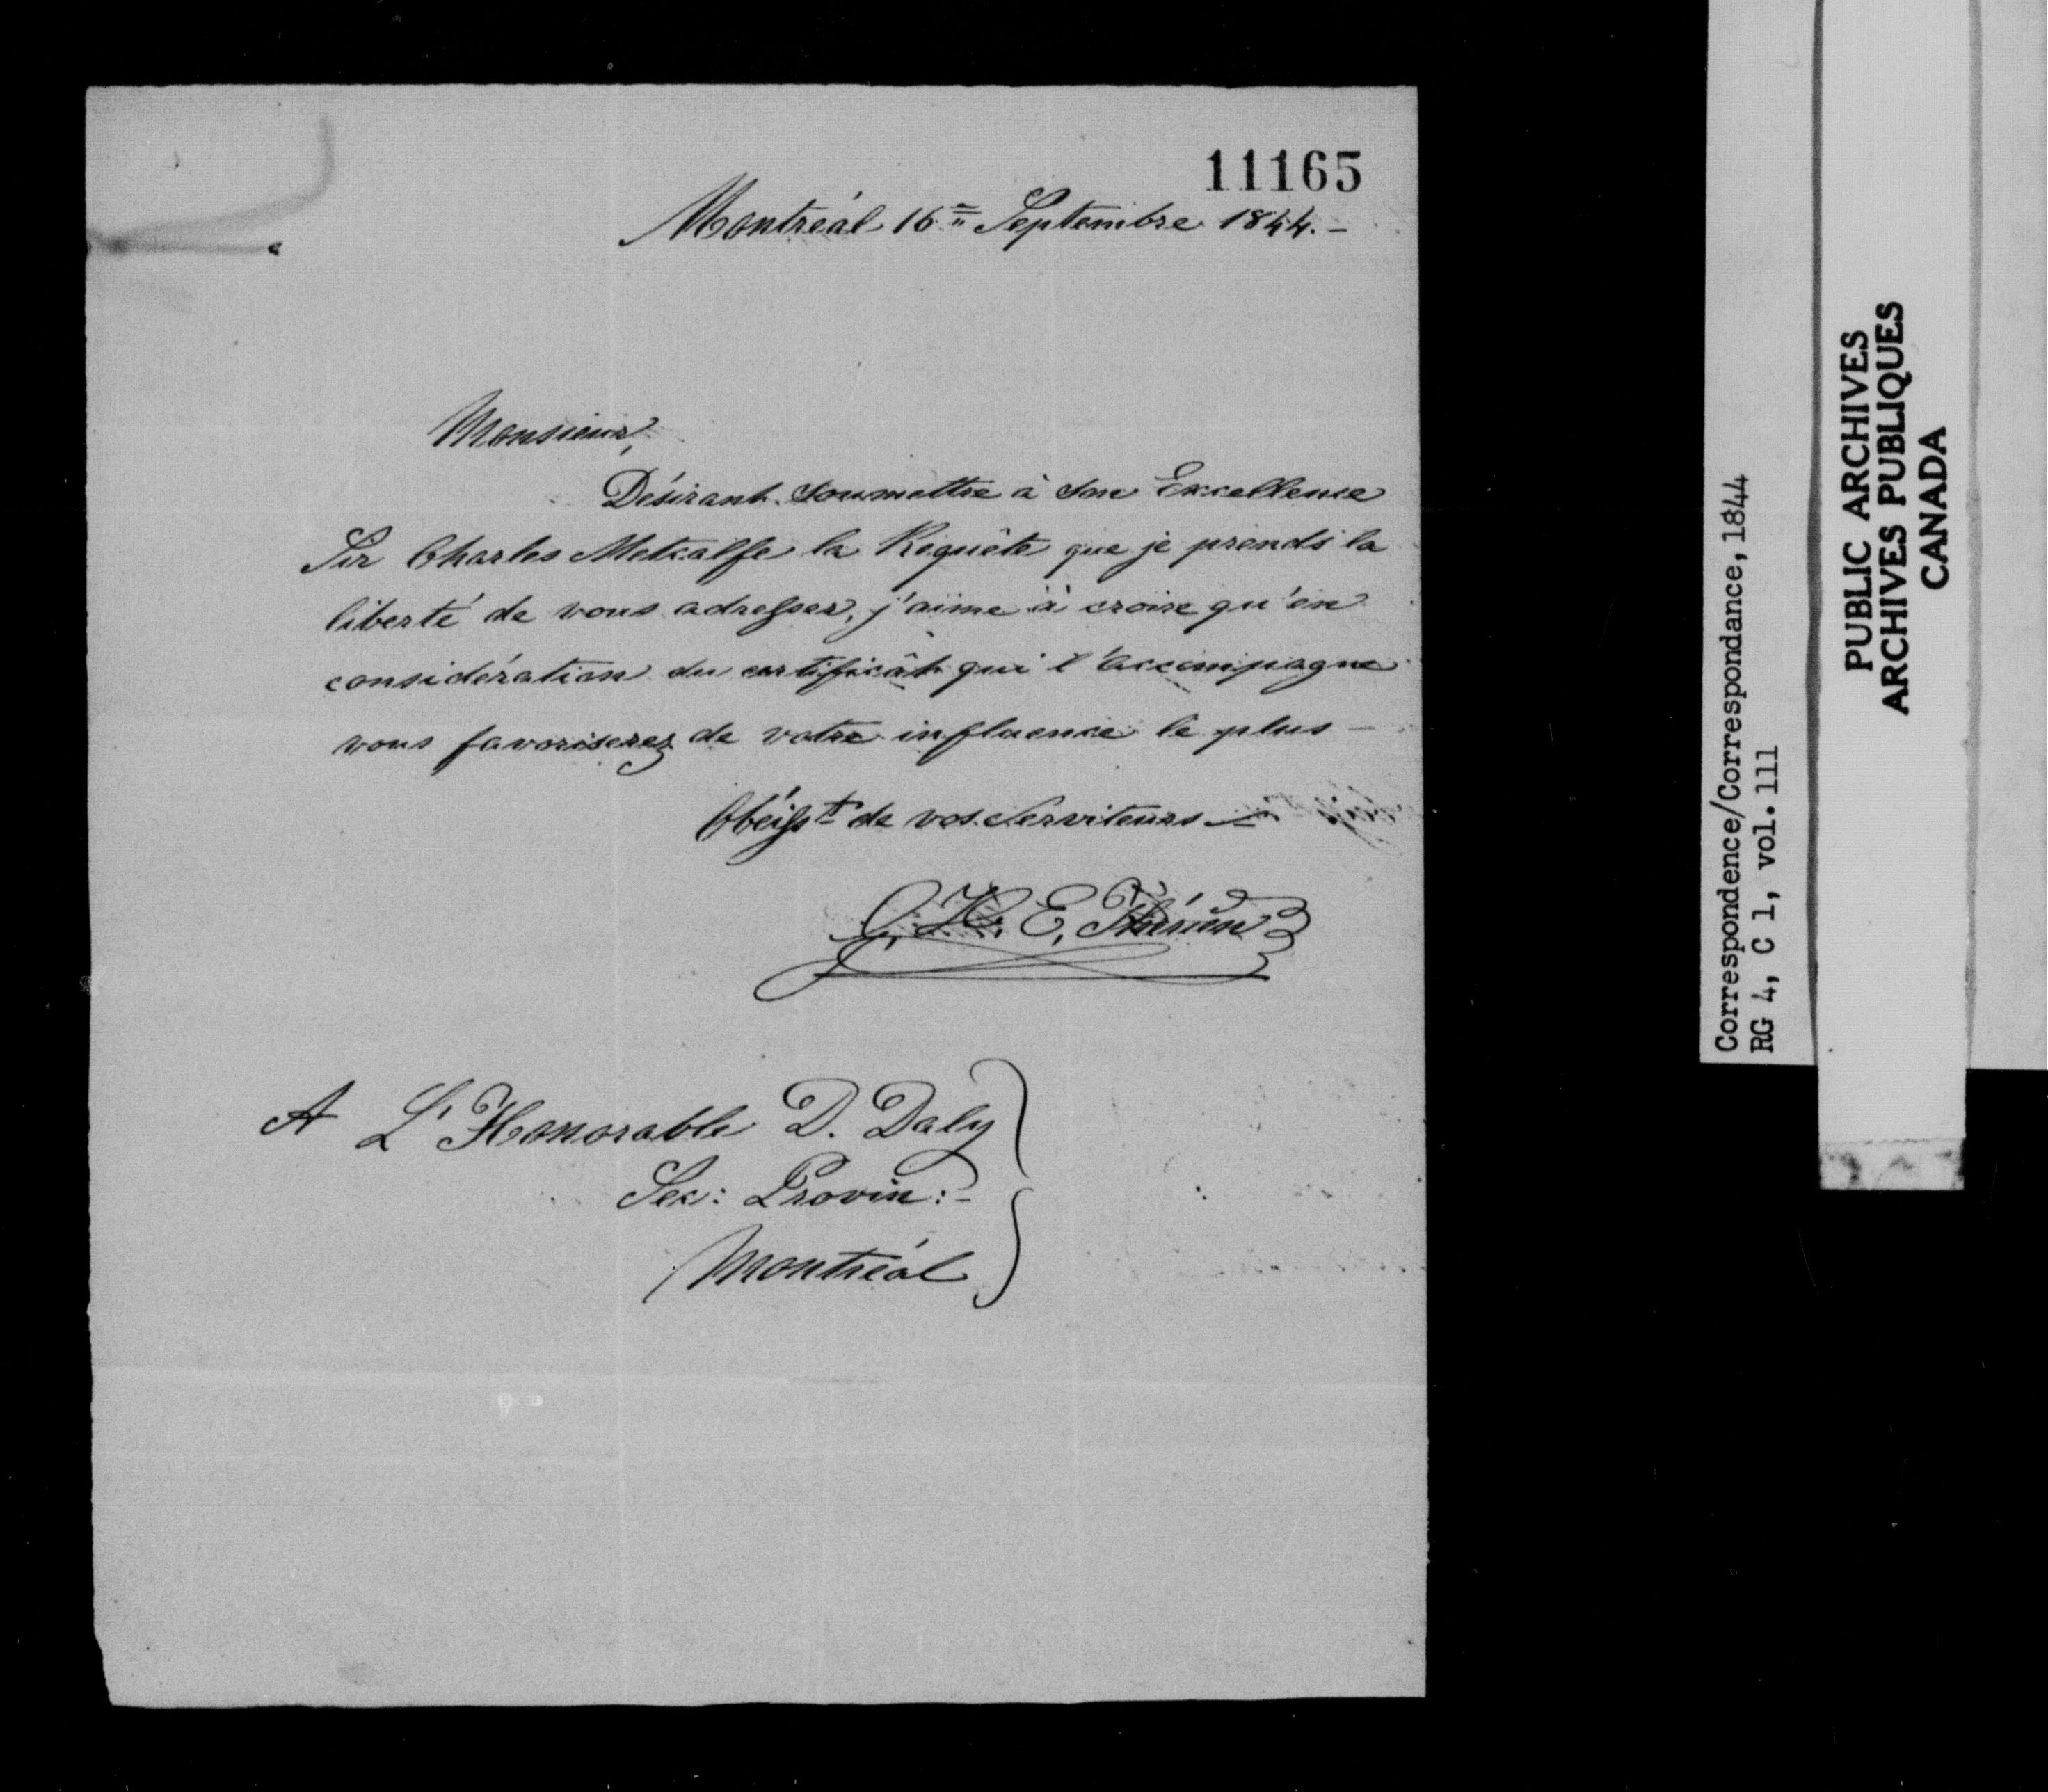 11165
Montréal 16e Septembre 1844.-
Monsieur,
Désirant soumettre à Son Excellence
Sir Charles Metcalfe la Requête que je prends la
liberté de vous adresser, j'aime à croire qu'en
considération du certificât qui l'accompagne
vous favoriserez de votre influence le plus -
Obéisst de vos Serviteurs -
C. H. E. Thérien
A L'Honorable D. Daly
Sec: Provin:-
Montréal
Correspondence/Correspondance, 1844
RG 4, C 1, vol. 111
PUBLIC ARCHIVES
ARCHIVES PUBLIQUES
CANADA